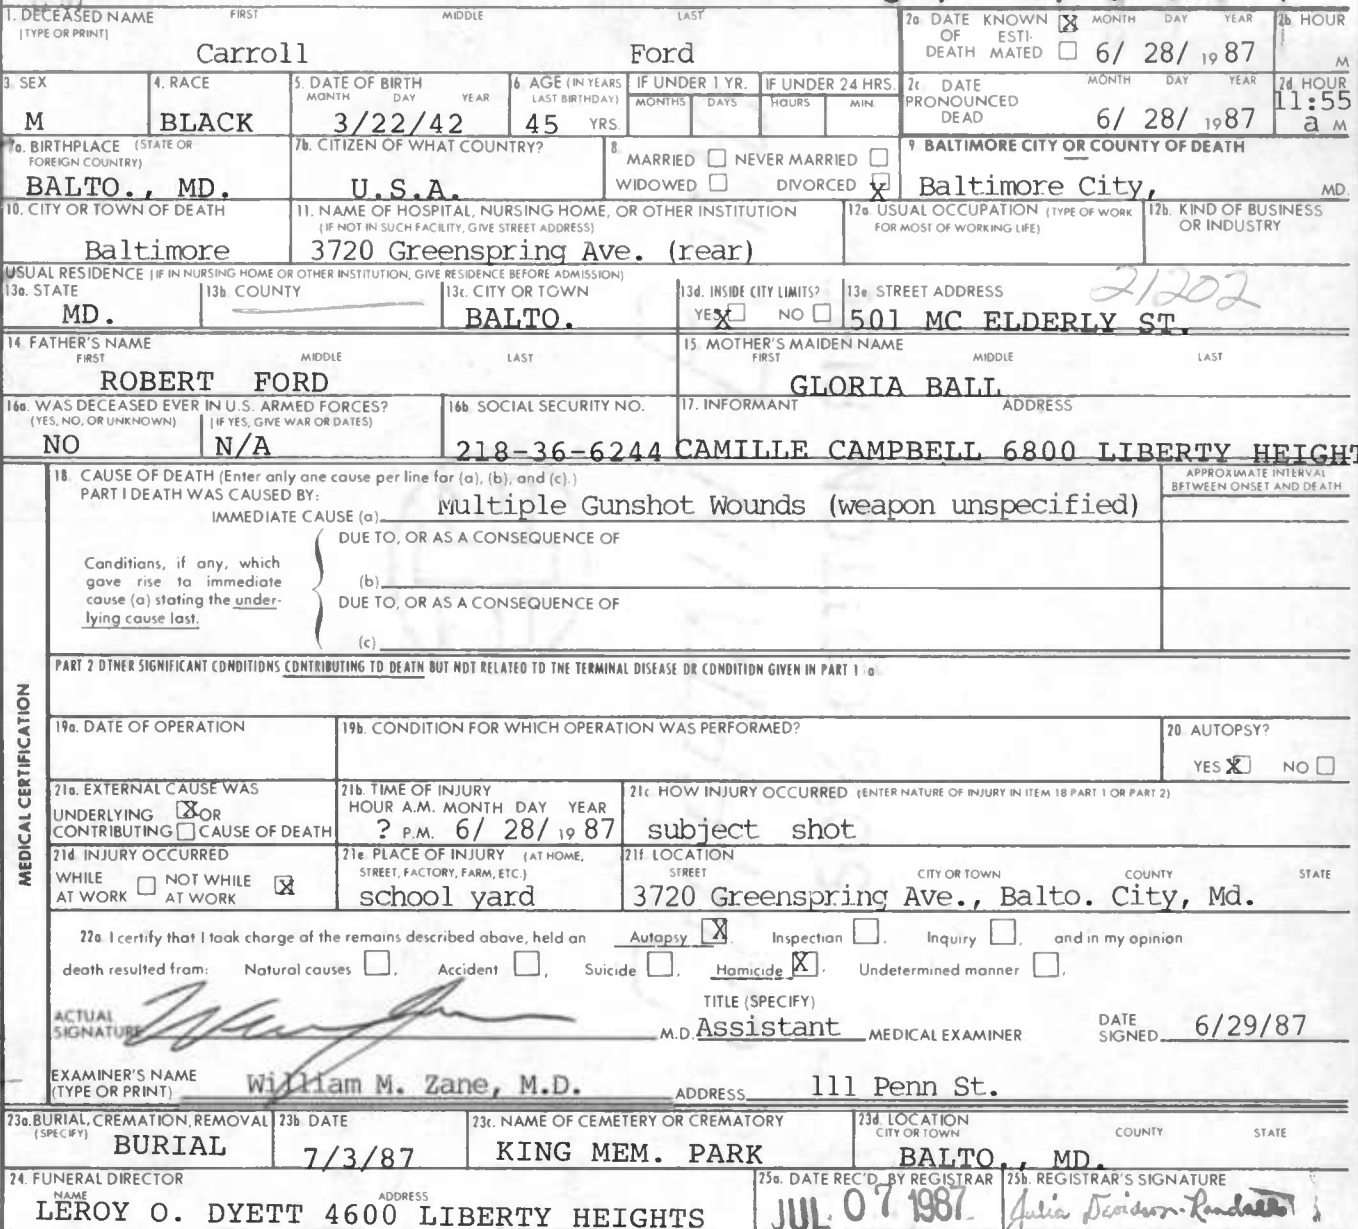 1. DECEASED NAME FIRST MIDDLE LAST
(TYPE OR PRINT)
Carroll Ford
2a DATE KNOWN X MONTH DAY YEAR
OF ESTI-
DEATH MATED 6/ 28/ 1987
2b HOUR
M
3 SEX
M
4. RACE
BLACK
5. DATE OF BIRTH
MONTH DAY YEAR
3/22/42
6 AGE (IN YEARS
LAST BIRTHDAY)
45 YRS.
IF UNDER 1 YR.
MONTHS DAYS
IF UNDER 24 HRS.
HOURS MIN.
2c DATE MONTH DAY YEAR
PRONOUNCED
DEAD 6/ 28/ 1987
2d HOUR
11:55
a M
7a. BIRTHPLACE (STATE OR
FOREIGN COUNTRY)
BALTO., MD.
7b. CITIZEN OF WHAT COUNTRY?
U.S.A.
8
MARRIED NEVER MARRIED
WIDOWED DIVORCED X
9. BALTIMORE CITY OR COUNTY OF DEATH
Baltimore City, MD.
10. CITY OR TOWN OF DEATH
Baltimore
11. NAME OF HOSPITAL, NURSING HOME, OR OTHER INSTITUTION
(IF NOT IN SUCH FACILITY, GIVE STREET ADDRESS)
3720 Greenspring Ave. (rear)
12a. USUAL OCCUPATION (TYPE OF WORK
FOR MOST OF WORKING LIFE)
12b. KIND OF BUSINESS
OR INDUSTRY
USUAL RESIDENCE (IF IN NURSING HOME OR OTHER INSTITUTION, GIVE RESIDENCE BEFORE ADMISSION)
13a. STATE
MD.
13b. COUNTY
13c. CITY OR TOWN
BALTO.
13d. INSIDE CITY LIMITS?
YES X NO
13e STREET ADDRESS 21202
501 MC ELDERLY ST.
14 FATHER'S NAME
FIRST MIDDLE LAST
ROBERT FORD
15 MOTHER'S MAIDEN NAME
FIRST MIDDLE LAST
GLORIA BALL
16a. WAS DECEASED EVER IN U.S. ARMED FORCES?
(YES, NO, OR UNKNOWN) (IF YES, GIVE WAR OR DATES)
NO N/A
16b. SOCIAL SECURITY NO.
218-36-6244
17. INFORMANT ADDRESS
CAMILLE CAMPBELL 6800 LIBERTY HEIGHT
18. CAUSE OF DEATH (Enter only one cause per line for (a), (b), and (c).)
PART I DEATH WAS CAUSED BY:
IMMEDIATE CAUSE (a) Multiple Gunshot Wounds (weapon unspecified)
APPROXIMATE INTERVAL
BETWEEN ONSET AND DEATH
DUE TO, OR AS A CONSEQUENCE OF
Conditions, if any, which
gave rise to immediate
cause (a) stating the under-
lying cause last.
(b)
DUE TO, OR AS A CONSEQUENCE OF
(c)
PART 2 OTHER SIGNIFICANT CONDITIONS CONTRIBUTING TO DEATH BUT NOT RELATED TO THE TERMINAL DISEASE OR CONDITION GIVEN IN PART 1 a
MEDICAL CERTIFICATION
19a. DATE OF OPERATION
19b. CONDITION FOR WHICH OPERATION WAS PERFORMED?
20 AUTOPSY?
YES X NO
21a. EXTERNAL CAUSE WAS
UNDERLYING X OR
CONTRIBUTING CAUSE OF DEATH
21b. TIME OF INJURY
HOUR A.M. MONTH DAY YEAR
? P.M. 6/ 28/ 1987
21c HOW INJURY OCCURRED (ENTER NATURE OF INJURY IN ITEM 18 PART 1 OR PART 2)
subject shot
21d INJURY OCCURRED
WHILE NOT WHILE X
AT WORK AT WORK
21e. PLACE OF INJURY (AT HOME,
STREET, FACTORY, FARM, ETC.)
school yard
21f. LOCATION
STREET CITY OR TOWN COUNTY STATE
3720 Greenspring Ave., Balto. City, Md.
22a I certify that I took charge of the remains described above, held an Autopsy X, Inspection, Inquiry, and in my opinion
death resulted from: Natural causes, Accident, Suicide, Homicide X, Undetermined manner.
ACTUAL
SIGNATURE
M.D.
TITLE (SPECIFY)
Assistant MEDICAL EXAMINER
DATE
SIGNED 6/29/87
EXAMINER'S NAME
(TYPE OR PRINT) William M. Zane, M.D. ADDRESS 111 Penn St.
23a. BURIAL, CREMATION, REMOVAL
(SPECIFY)
BURIAL
23b. DATE
7/3/87
23c. NAME OF CEMETERY OR CREMATORY
KING MEM. PARK
23d. LOCATION
CITY OR TOWN COUNTY STATE
BALTO., MD.
24. FUNERAL DIRECTOR
NAME ADDRESS
LEROY O. DYETT 4600 LIBERTY HEIGHTS
25a. DATE REC'D BY REGISTRAR
JUL 07 1987
25b. REGISTRAR'S SIGNATURE
Julia Davidson-Randall